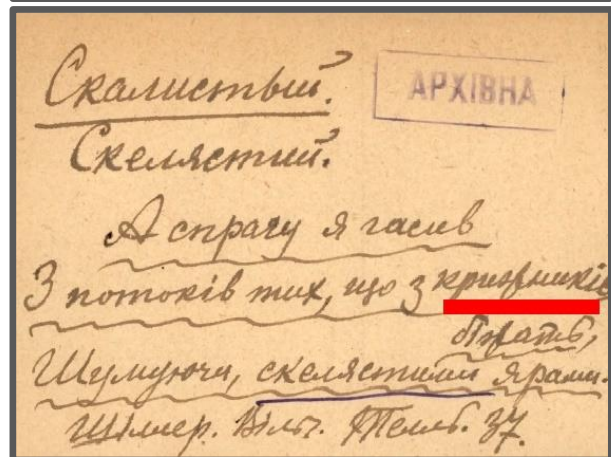 Скалистый.
АРХІВНА
Скелястий.
А спрагу я гасив
З потоків тих, що з кригрників
біжать,
Шумуючи, скелястими ярами.
Шіллер. Вільг. Телль. 37.